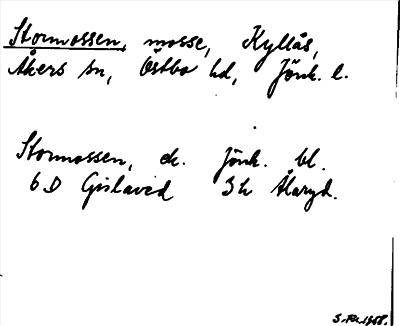 Stormossen, mosse, Kyllås,
Åkers sn, Östbo hd, Jönk. l.
Stormossen, ek. Jönk. bl.
6 D Gislaved 3 h Ålaryd.
1968.